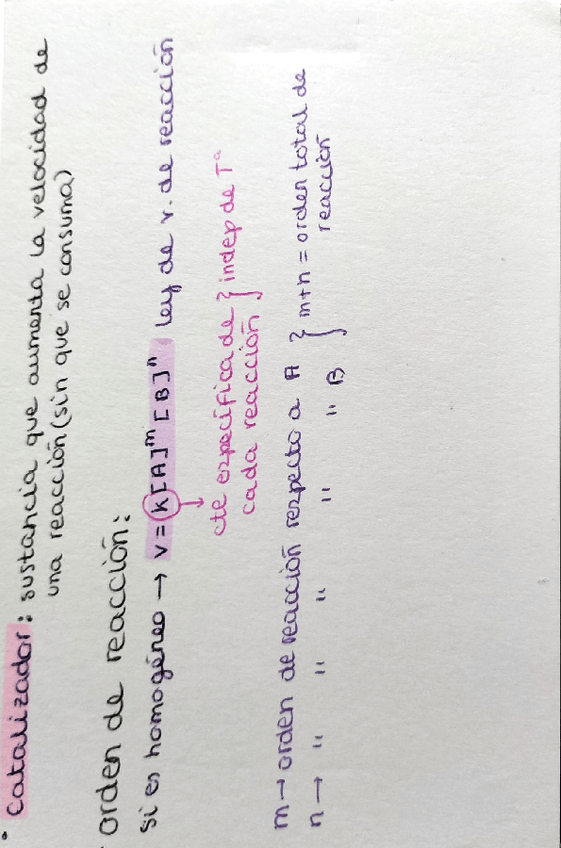 · Catalizador: sustancia que aumenta la velocidad de
una reacción (sin que se consuma)
· orden de reacción:
si es homogéneo → v = k[A]ᵐ [B]ⁿ ley de v. de reacción
cte específica de } indep de Tª
cada reacción
m → orden de reacción respecto a A } m+n = orden total de
reacción
n → " " " " " B